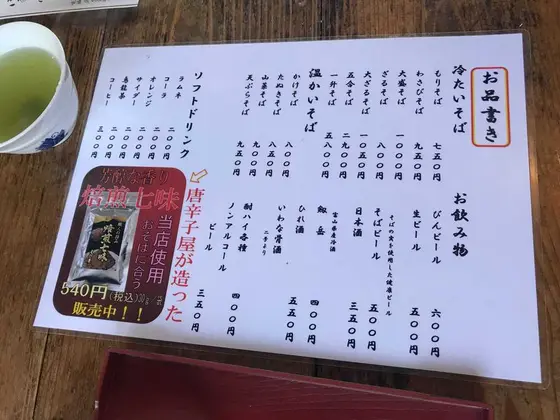 お品書き
冷たいそば
もりそば 七五〇円
わさびそば 九五〇円
大盛そば 一〇〇〇円
ざるそば 八五〇円
大ざるそば 一〇五〇円
五合そば 二九〇〇円
一升そば 五八〇〇円
温かいそば
かけそば 八〇〇円
たぬきそば 八五〇円
山菜そば
天ぷらそば 九五〇円
ソフトドリンク
ラムネ 二〇〇円
コーラ 二〇〇円
オレンジ 二〇〇円
サイダー 二〇〇円
烏龍茶 二〇〇円
コーヒー 三〇〇円
お飲み物
びんビール 六〇〇円
生ビール 五〇〇円
そばの実を使用した健康ビール
そばビール 五〇〇円
日本酒 三五〇円
富山県産冷酒
剱岳 四〇〇円
ひれ酒 五五〇円
いわな骨酒
二合より
酎ハイ各種 四〇〇円
ノンアルコール
ビール 三五〇円
唐辛子屋が造った
芳醇な香り
焙煎七味
当店使用
おそばに合う
焙煎七味
540円(税込)
販売中！！